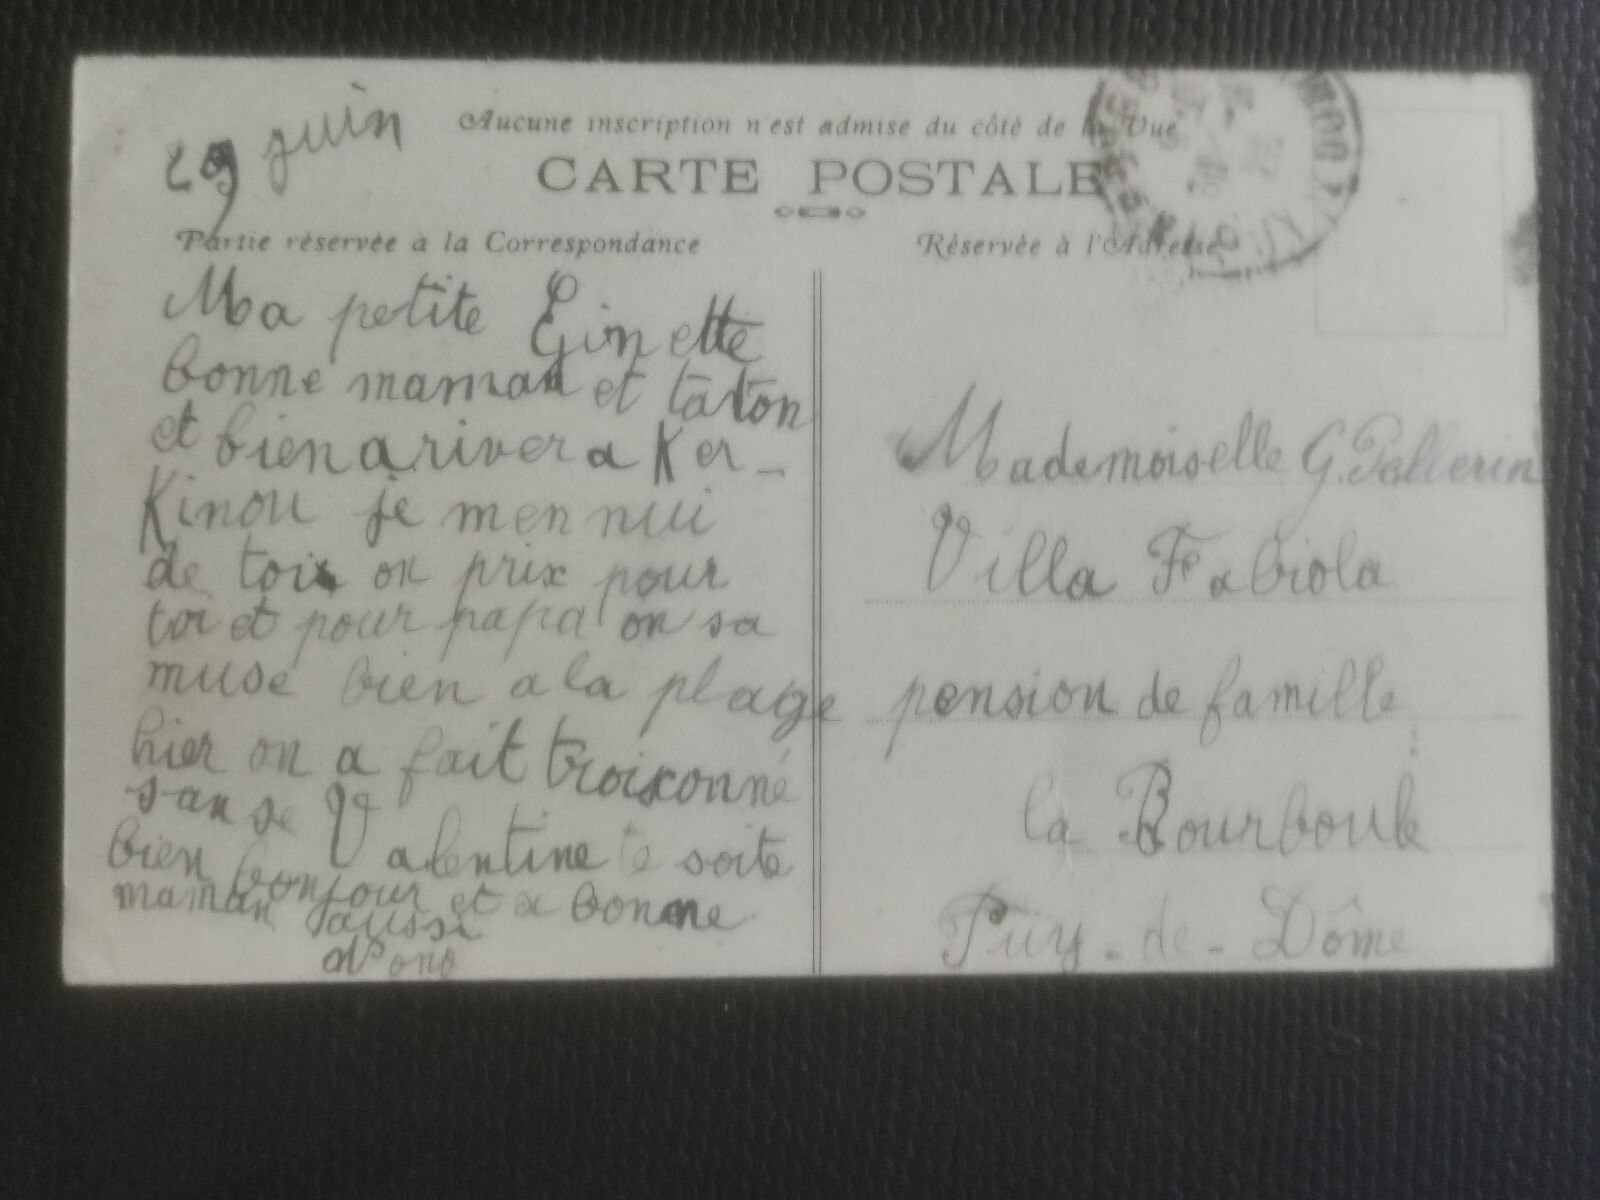 29 juin
Aucune inscription n'est admise du côté de la Vue
CARTE POSTALE
Partie réservée à la Correspondance
Réservée à l'Adresse
Ma petite Ginette
bonne maman et taton
et bien a river a Ker-
Kinou je men nui
de toi on prix pour
toi et pour papa on sa
muse bien a la plage
hier on a fait troixonné
san se Valentine te soite
bien bonjour et a bonne
maman aussi
Nono
Mademoiselle G. Pellerin
Villa Fabiola
pension de famille
la Bourboule
Puy-de-Dôme